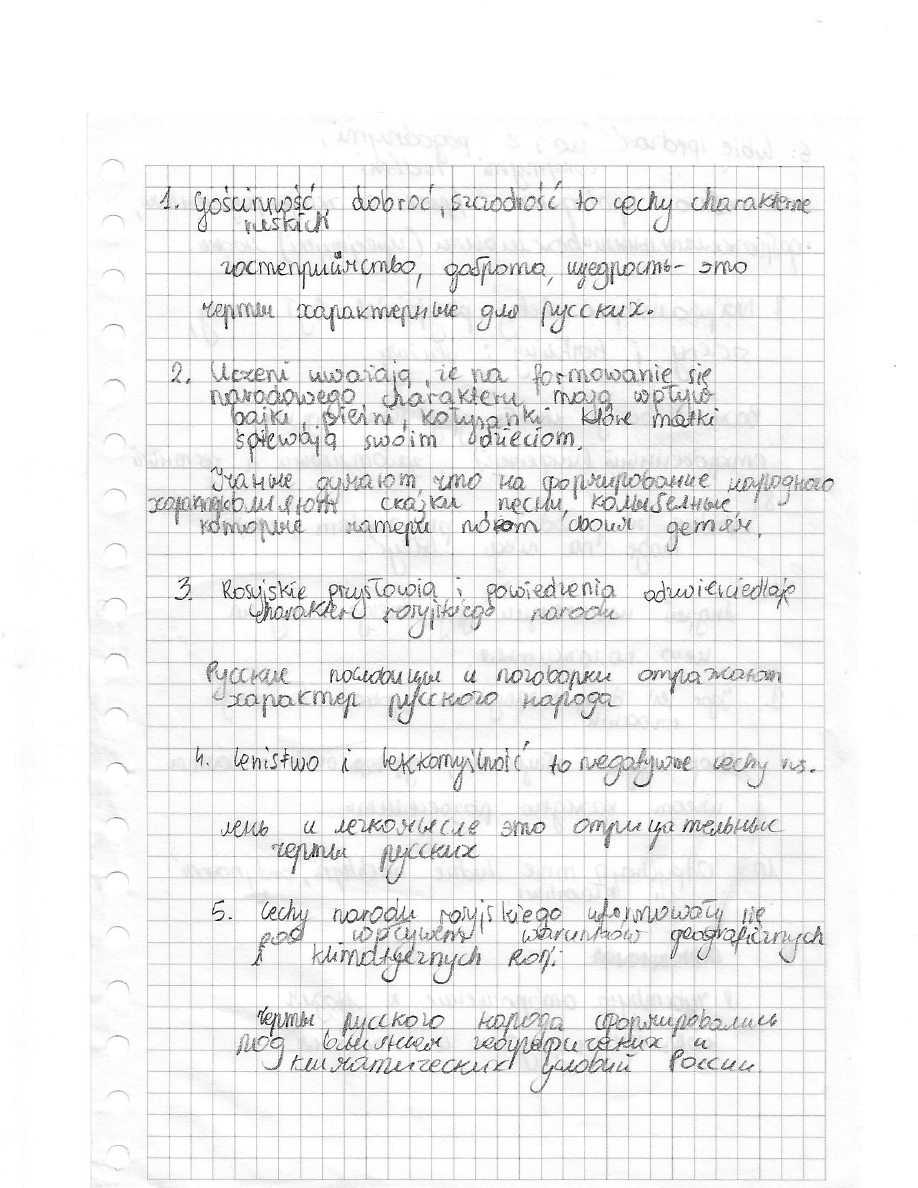 1. Gościnność, dobroć, szczodrość to cechy charakterne
ruskich
гостеприимство, доброта, щедрость - это
черты характерные для русских.
2. Uczeni uważają, że na formowanie się
narodowego charakteru mają wpływ
bajki, pieśni, kołysanki, które matki
śpiewają swoim dzieciom.
Учаные думают, что на формирование народного
характера влияют сказки, песни, колыбелные,
которые матери поют своим детям.
3. Rosyjskie przysłowia i powiedzenia odzwierciedlają
charakter rosyjskiego narodu
Русские пословицы и поговорки отражают
характер русского народа
4. Lenistwo i lekkomyślność to negatywne cechy rus.
лень и легкомысле это отрицательные
черты русских
5. Cechy narodu rosyjskiego uformowały się
pod wpływem warunków geograficznych
i klimatycznych Rosji
Черты русского народа сформировались
под влиянием географических и
климатических условий России.